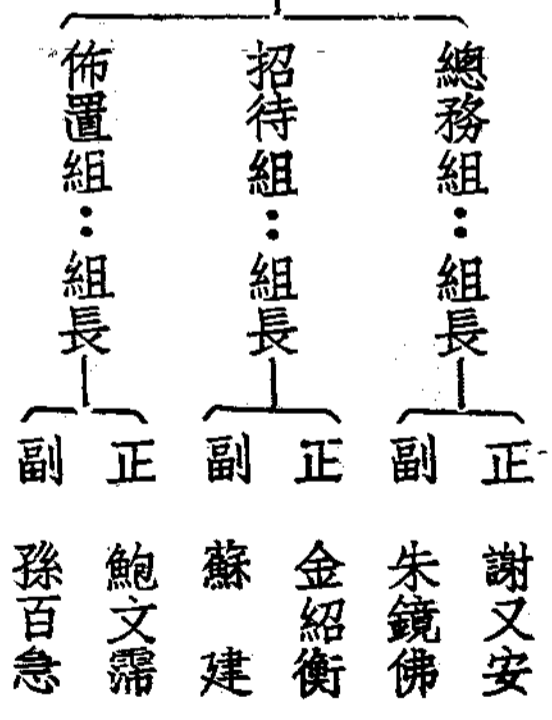 總務組：組長
正 謝又安
副 朱鏡佛
招待組：組長
正 金紹衡
副 蘇建
佈置組：組長
正 鮑文霈
副 孫百急